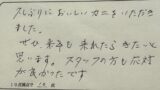 久しぶりにおいしいカニをいただき
ました。
ぜひ来年も来れたらきたいと
思います。スタッフの方も応対
が良かったです